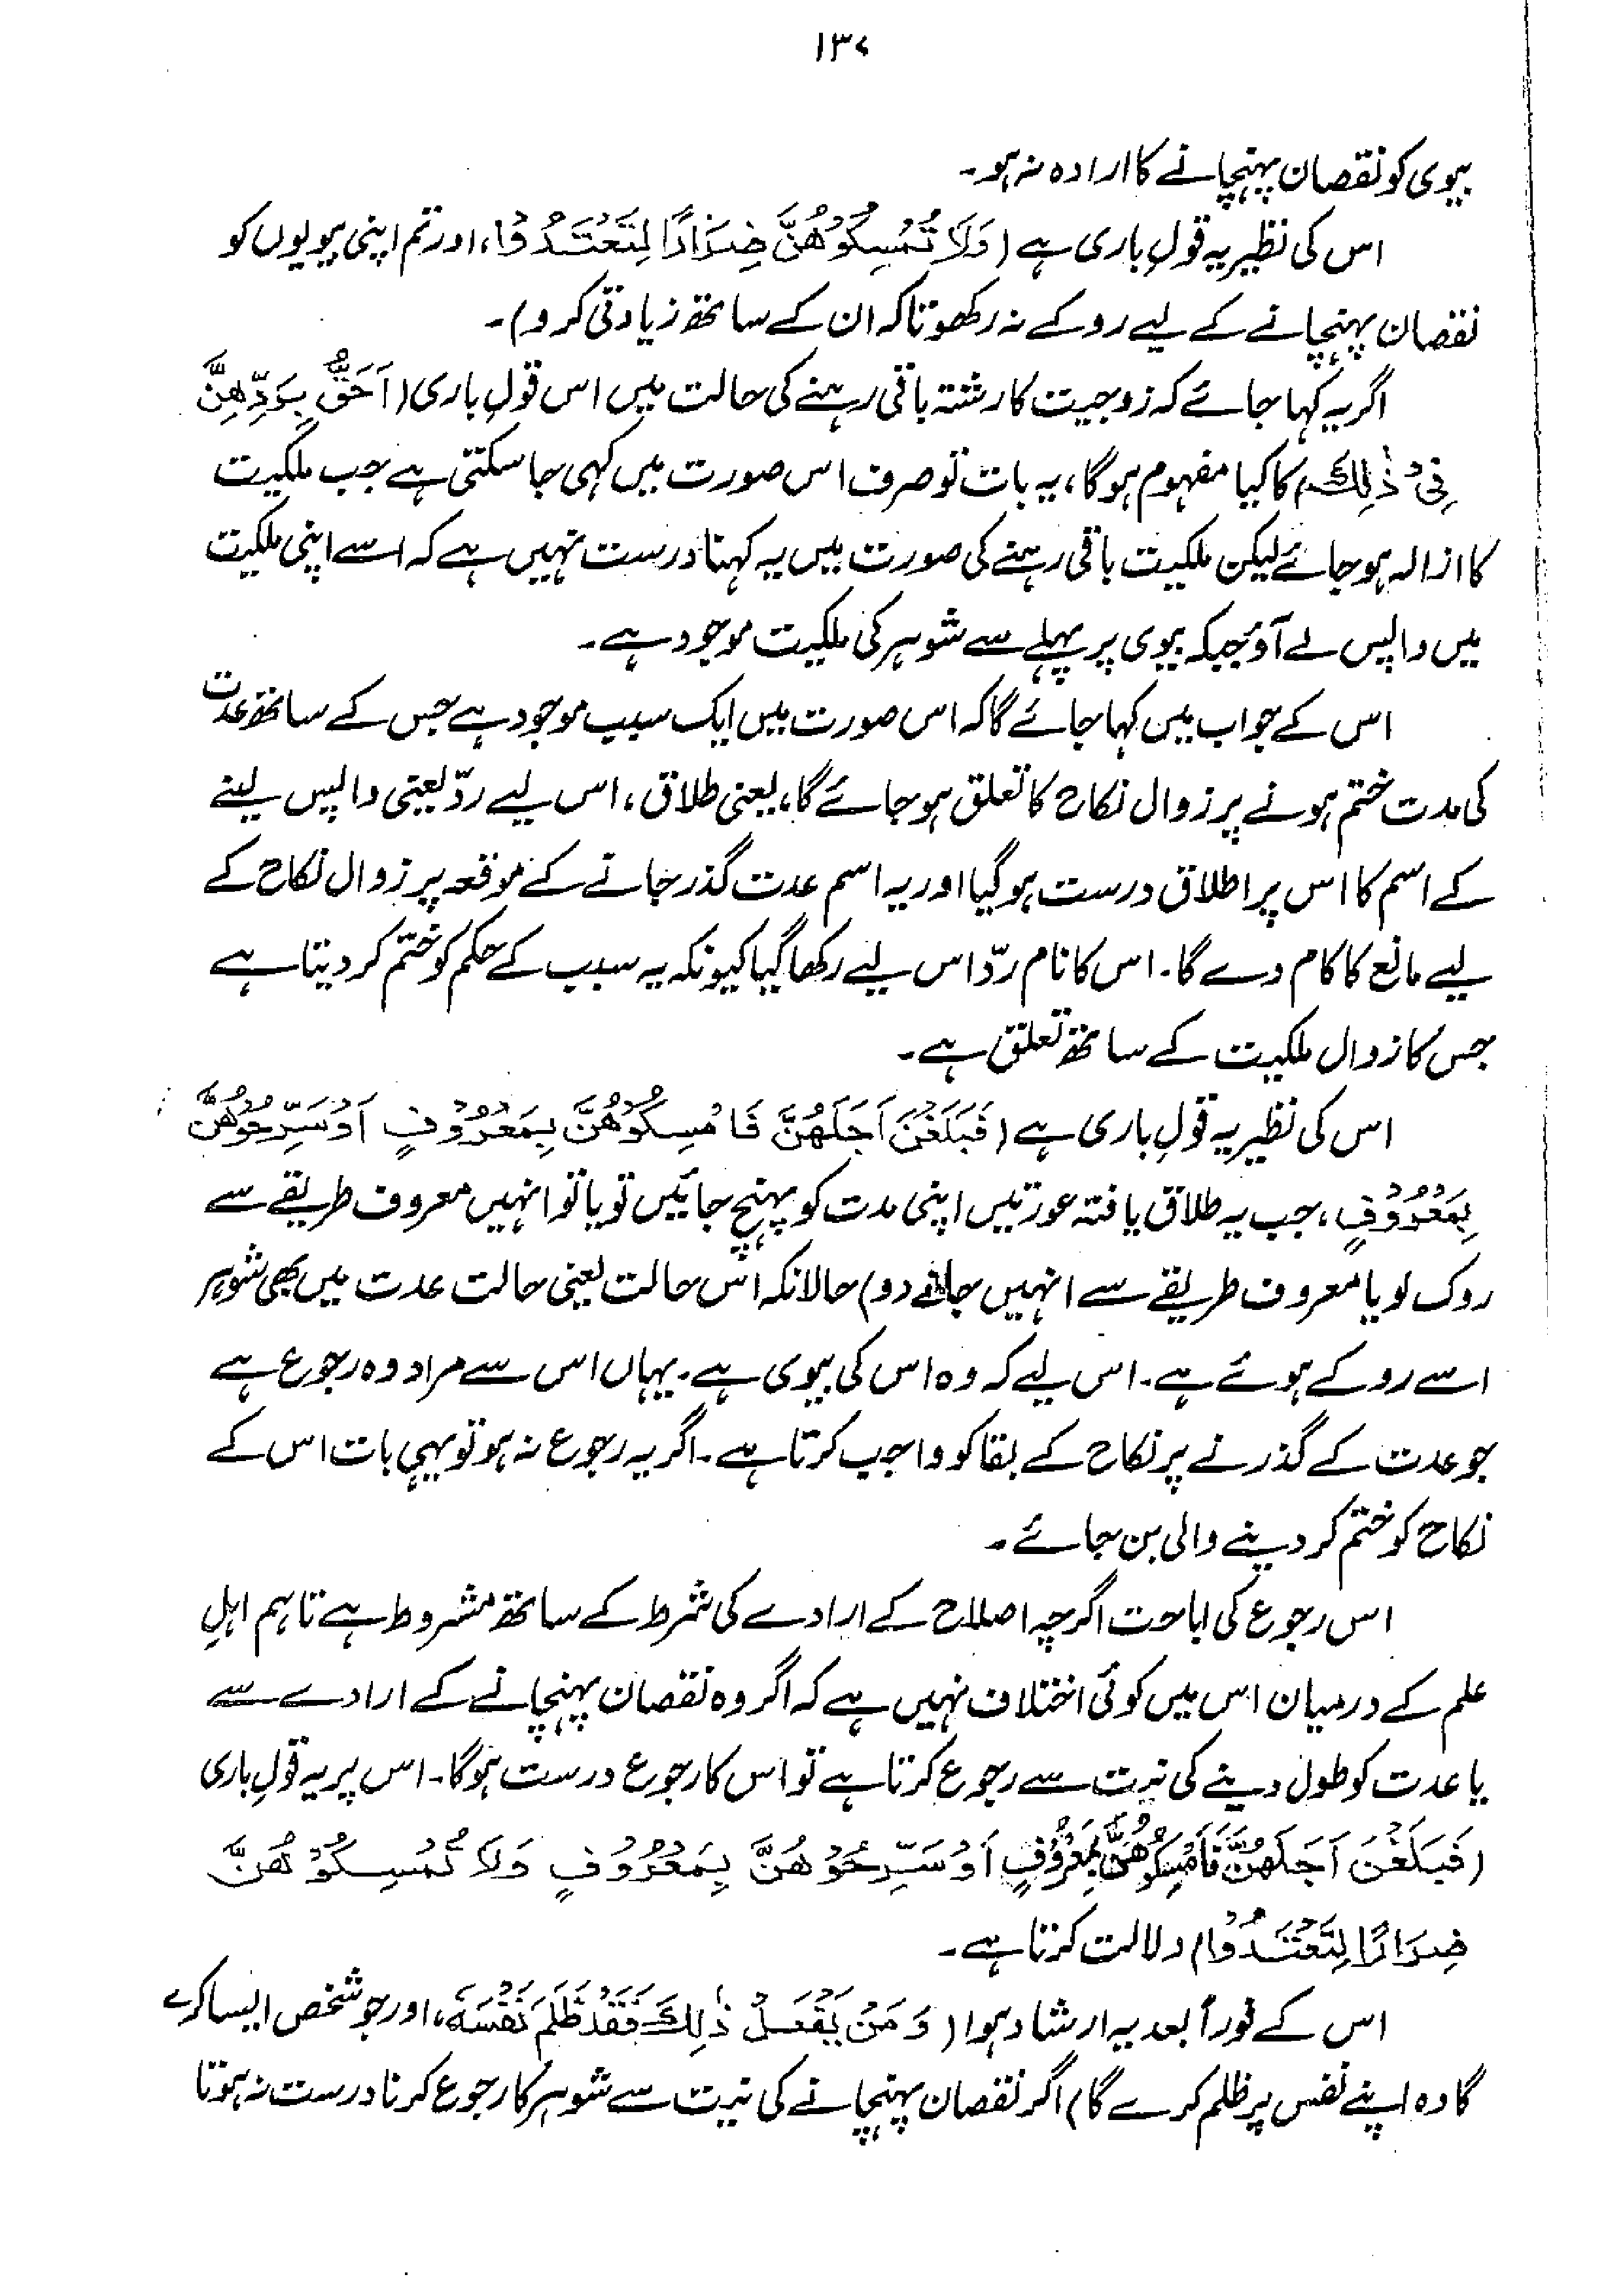 ۱۳۷
بیوی کو نقصان پہنچانے کا ارادہ نہ ہو۔
اس کی نظیر یہ قولِ باری ہے (وَلَا تُمْسِكُوْهُنَّ ضِرَارًا لِّتَعْتَدُوْا، اور تم اپنی بیویوں کو
نقصان پہنچانے کے لیے روکے نہ رکھو تاکہ ان کے ساتھ زیادتی کرو)۔
اگر یہ کہا جائے کہ زوجیت کا رشتہ باقی رہنے کی حالت میں اس قولِ باری (اَحَقُّ بِرَدِّهِنَّ
فِیْ ذٰلِكَ) کا کیا مفہوم ہوگا، یہ بات تو صرف اس صورت میں کہی جا سکتی ہے جب ملکیت
کا ازالہ ہو جائے لیکن ملکیت باقی رہنے کی صورت میں یہ کہنا درست نہیں ہے کہ اسے اپنی ملکیت
میں واپس لے آؤ جبکہ بیوی پر پہلے سے شوہر کی ملکیت موجود ہے۔
اس کے جواب میں کہا جائے گا کہ اس صورت میں ایک سبب موجود ہے جس کے ساتھ عدت
کی مدت ختم ہونے پر زوال نکاح کا تعلق ہو جائے گا، یعنی طلاق، اس لیے ردّ یعنی واپس لینے
کے اسم کا اس پر اطلاق درست ہو گیا اور یہ اسم عدت گذر جانے کے موقعہ پر زوال نکاح کے
لیے مانع کا کام دے گا۔ اس کا نام ردّ اس لیے رکھا گیا کیونکہ یہ سبب کے حکم کو ختم کر دیتا ہے
جس کا زوال ملکیت کے ساتھ تعلق ہے۔
اس کی نظیر یہ قولِ باری ہے (فَبَلَغْنَ اَجَلَهُنَّ فَامْسِكُوْهُنَّ بِمَعْرُوْفٍ اَوْ سَرِّحُوْهُنَّ
بِمَعْرُوْفٍ، جب یہ طلاق یافتہ عورتیں اپنی مدت کو پہنچ جائیں تو یا تو انہیں معروف طریقے سے
روک لو یا معروف طریقے سے انہیں جانے دو) حالانکہ اس حالت یعنی حالت عدت میں بھی شوہر
اسے روکے ہوئے ہے۔ اس لیے کہ وہ اس کی بیوی ہے۔ یہاں اس سے مراد وہ رجوع ہے
جو عدت کے گذرنے پر نکاح کے بقا کو واجب کرتا ہے۔ اگر یہ رجوع نہ ہو تو یہی بات اس کے
نکاح کو ختم کر دینے والی بن جائے۔
اس رجوع کی اباحت اگرچہ اصلاح کے ارادے کی شرط کے ساتھ مشروط ہے تاہم اہلِ
علم کے درمیان اس میں کوئی اختلاف نہیں ہے کہ اگر وہ نقصان پہنچانے کے ارادے سے
یا عدت کو طول دینے کی نیت سے رجوع کرتا ہے تو اس کا رجوع درست ہوگا۔ اس پر یہ قولِ باری
(فَبَلَغْنَ اَجَلَهُنَّ فَاَمْسِكُوْهُنَّ بِمَعْرُوْفٍ اَوْ سَرِّحُوْهُنَّ بِمَعْرُوْفٍ وَلَا تُمْسِكُوْهُنَّ
ضِرَارًا لِّتَعْتَدُوْا) دلالت کرتا ہے۔
اس کے فوراً بعد یہ ارشاد ہوا (وَمَنْ يَّفْعَلْ ذٰلِكَ فَقَدْ ظَلَمَ نَفْسَهٗ، اور جو شخص ایسا کرے
گا وہ اپنے نفس پر ظلم کرے گا) اگر نقصان پہنچانے کی نیت سے شوہر کا رجوع کرنا درست نہ ہوتا